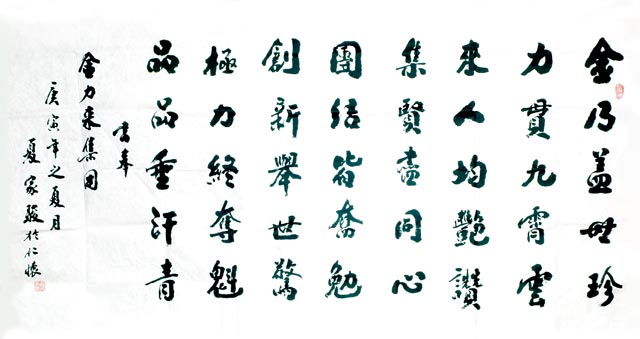 金乃蓋世珍
力貫九霄雲
來人均艷讚
集賢盡同心
團結皆奮勉
創新舉世驚
極力終奪魁
品品垂汗青
書奉
金力來集團
庚寅年之夏月
夏家駿於仁懷